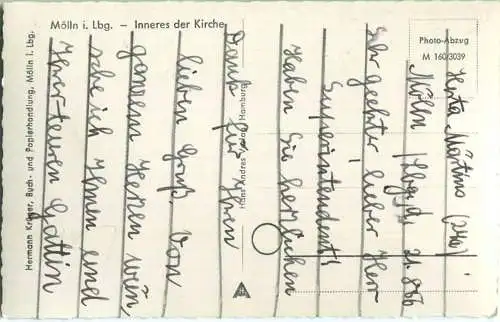 Mölln i. Lbg. – Inneres der Kirche
Hermann Krüger, Buch- und Papierhandlung, Mölln i. Lbg.
Photo-Abzug
M 160/3039
Hans Andres Hamburg
Herta Martins
Mölln /Lbg, d.
Sehr geehrter lieber Herr
Superintendent!
Haben Sie herzlichen
Dank für Ihren
lieben Gruß. Von
ganzem Herzen wün,
sche ich Ihnen und
Ihrer teuren Gattin